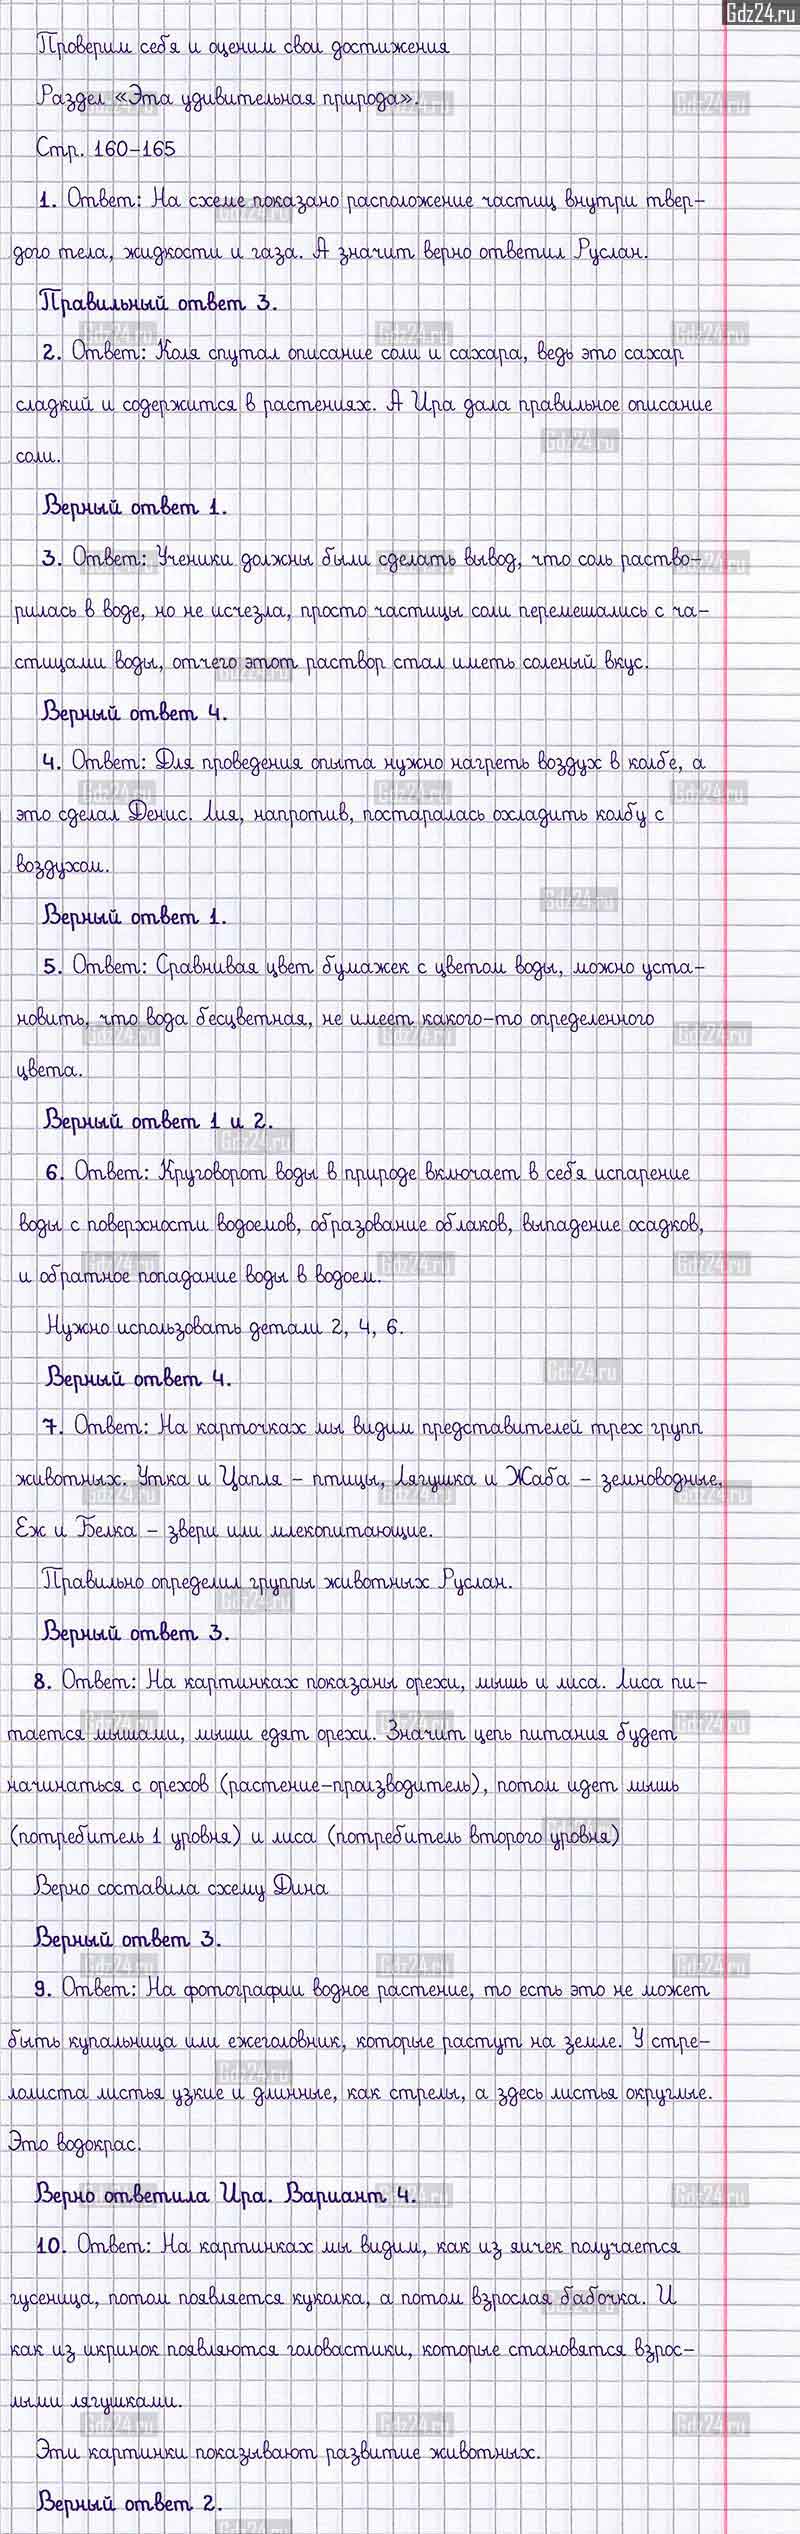 Gdz24.ru
Проверим себя и оценим свои достижения
Раздел «Эта удивительная природа».
Стр. 160-165
1. Ответ: На схеме показано расположение частиц внутри твер-
дого тела, жидкости и газа. А значит верно ответил Руслан.
Правильный ответ 3.
2. Ответ: Коля спутал описание соли и сахара, ведь это сахар
сладкий и содержится в растениях. А Ира дала правильное описание
соли.
Верный ответ 1.
3. Ответ: Ученики должны были сделать вывод, что соль раство-
рилась в воде, но не исчезла, просто частицы соли перемешались с ча-
стицами воды, отчего этот раствор стал иметь соленый вкус.
Верный ответ 4.
4. Ответ: Для проведения опыта нужно нагреть воздух в колбе, а
это сделал Денис. Лия, напротив, постаралась охладить колбу с
воздухом.
Верный ответ 1.
5. Ответ: Сравнивая цвет бумажек с цветом воды, можно уста-
новить, что вода бесцветная, не имеет какого-то определенного
цвета.
Верный ответ 1 и 2.
6. Ответ: Круговорот воды в природе включает в себя испарение
воды с поверхности водоемов, образование облаков, выпадение осадков,
и обратное попадание воды в водоем.
Нужно использовать детали 2, 4, 6.
Верный ответ 4.
7. Ответ: На карточках мы видим представителей трех групп
животных. Утка и Цапля - птицы, Лягушка и Жаба - земноводные,
Еж и Белка - звери или млекопитающие.
Правильно определил группы животных Руслан.
Верный ответ 3.
8. Ответ: На картинках показаны орехи, мышь и лиса. Лиса пи-
тается мышами, мыши едят орехи. Значит цепь питания будет
начинаться с орехов (растение-производитель), потом идет мышь
(потребитель 1 уровня) и лиса (потребитель второго уровня)
Верно составила схему Дина
Верный ответ 3.
9. Ответ: На фотографии водное растение, то есть это не может
быть купальница или ежеголовник, которые растут на земле. У стре-
лолиста листья узкие и длинные, как стрелы, а здесь листья округлые.
Это водокрас.
Верно ответила Ира. Вариант 4.
10. Ответ: На картинках мы видим, как из яичек получается
гусеница, потом появляется куколка, а потом взрослая бабочка. И
как из икринок появляются головастики, которые становятся взрос-
лыми лягушками.
Эти картинки показывают развитие животных.
Верный ответ 2.